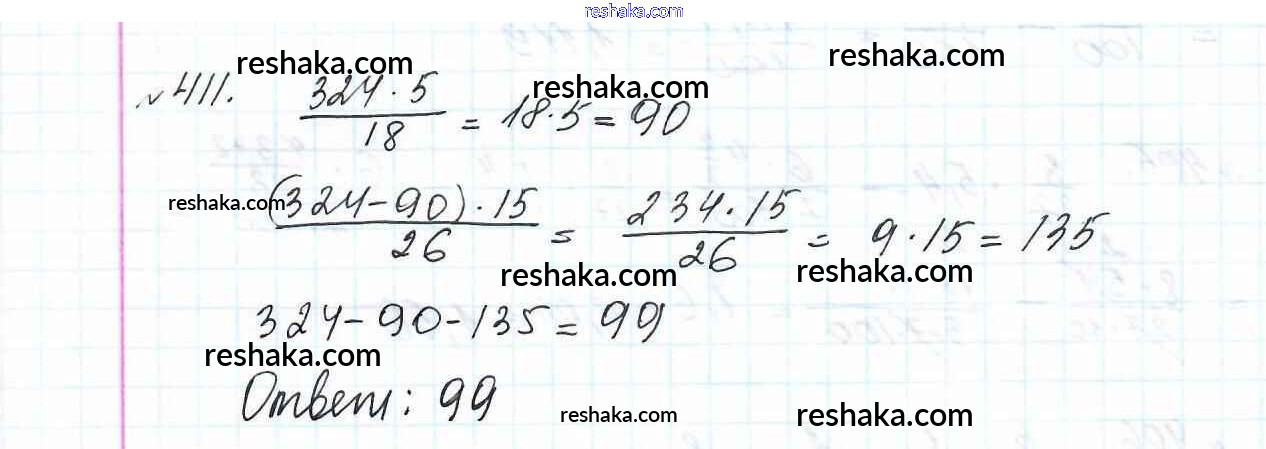 reshaka.com
reshaka.com reshaka.com
№ 411. 324·5/18 = 18·5 = 90 reshaka.com
reshaka.com (324-90)·15/26 = 234·15/26 = 9·15 = 135
reshaka.com reshaka.com
324-90-135 = 99
reshaka.com
Ответ: 99
reshaka.com reshaka.com